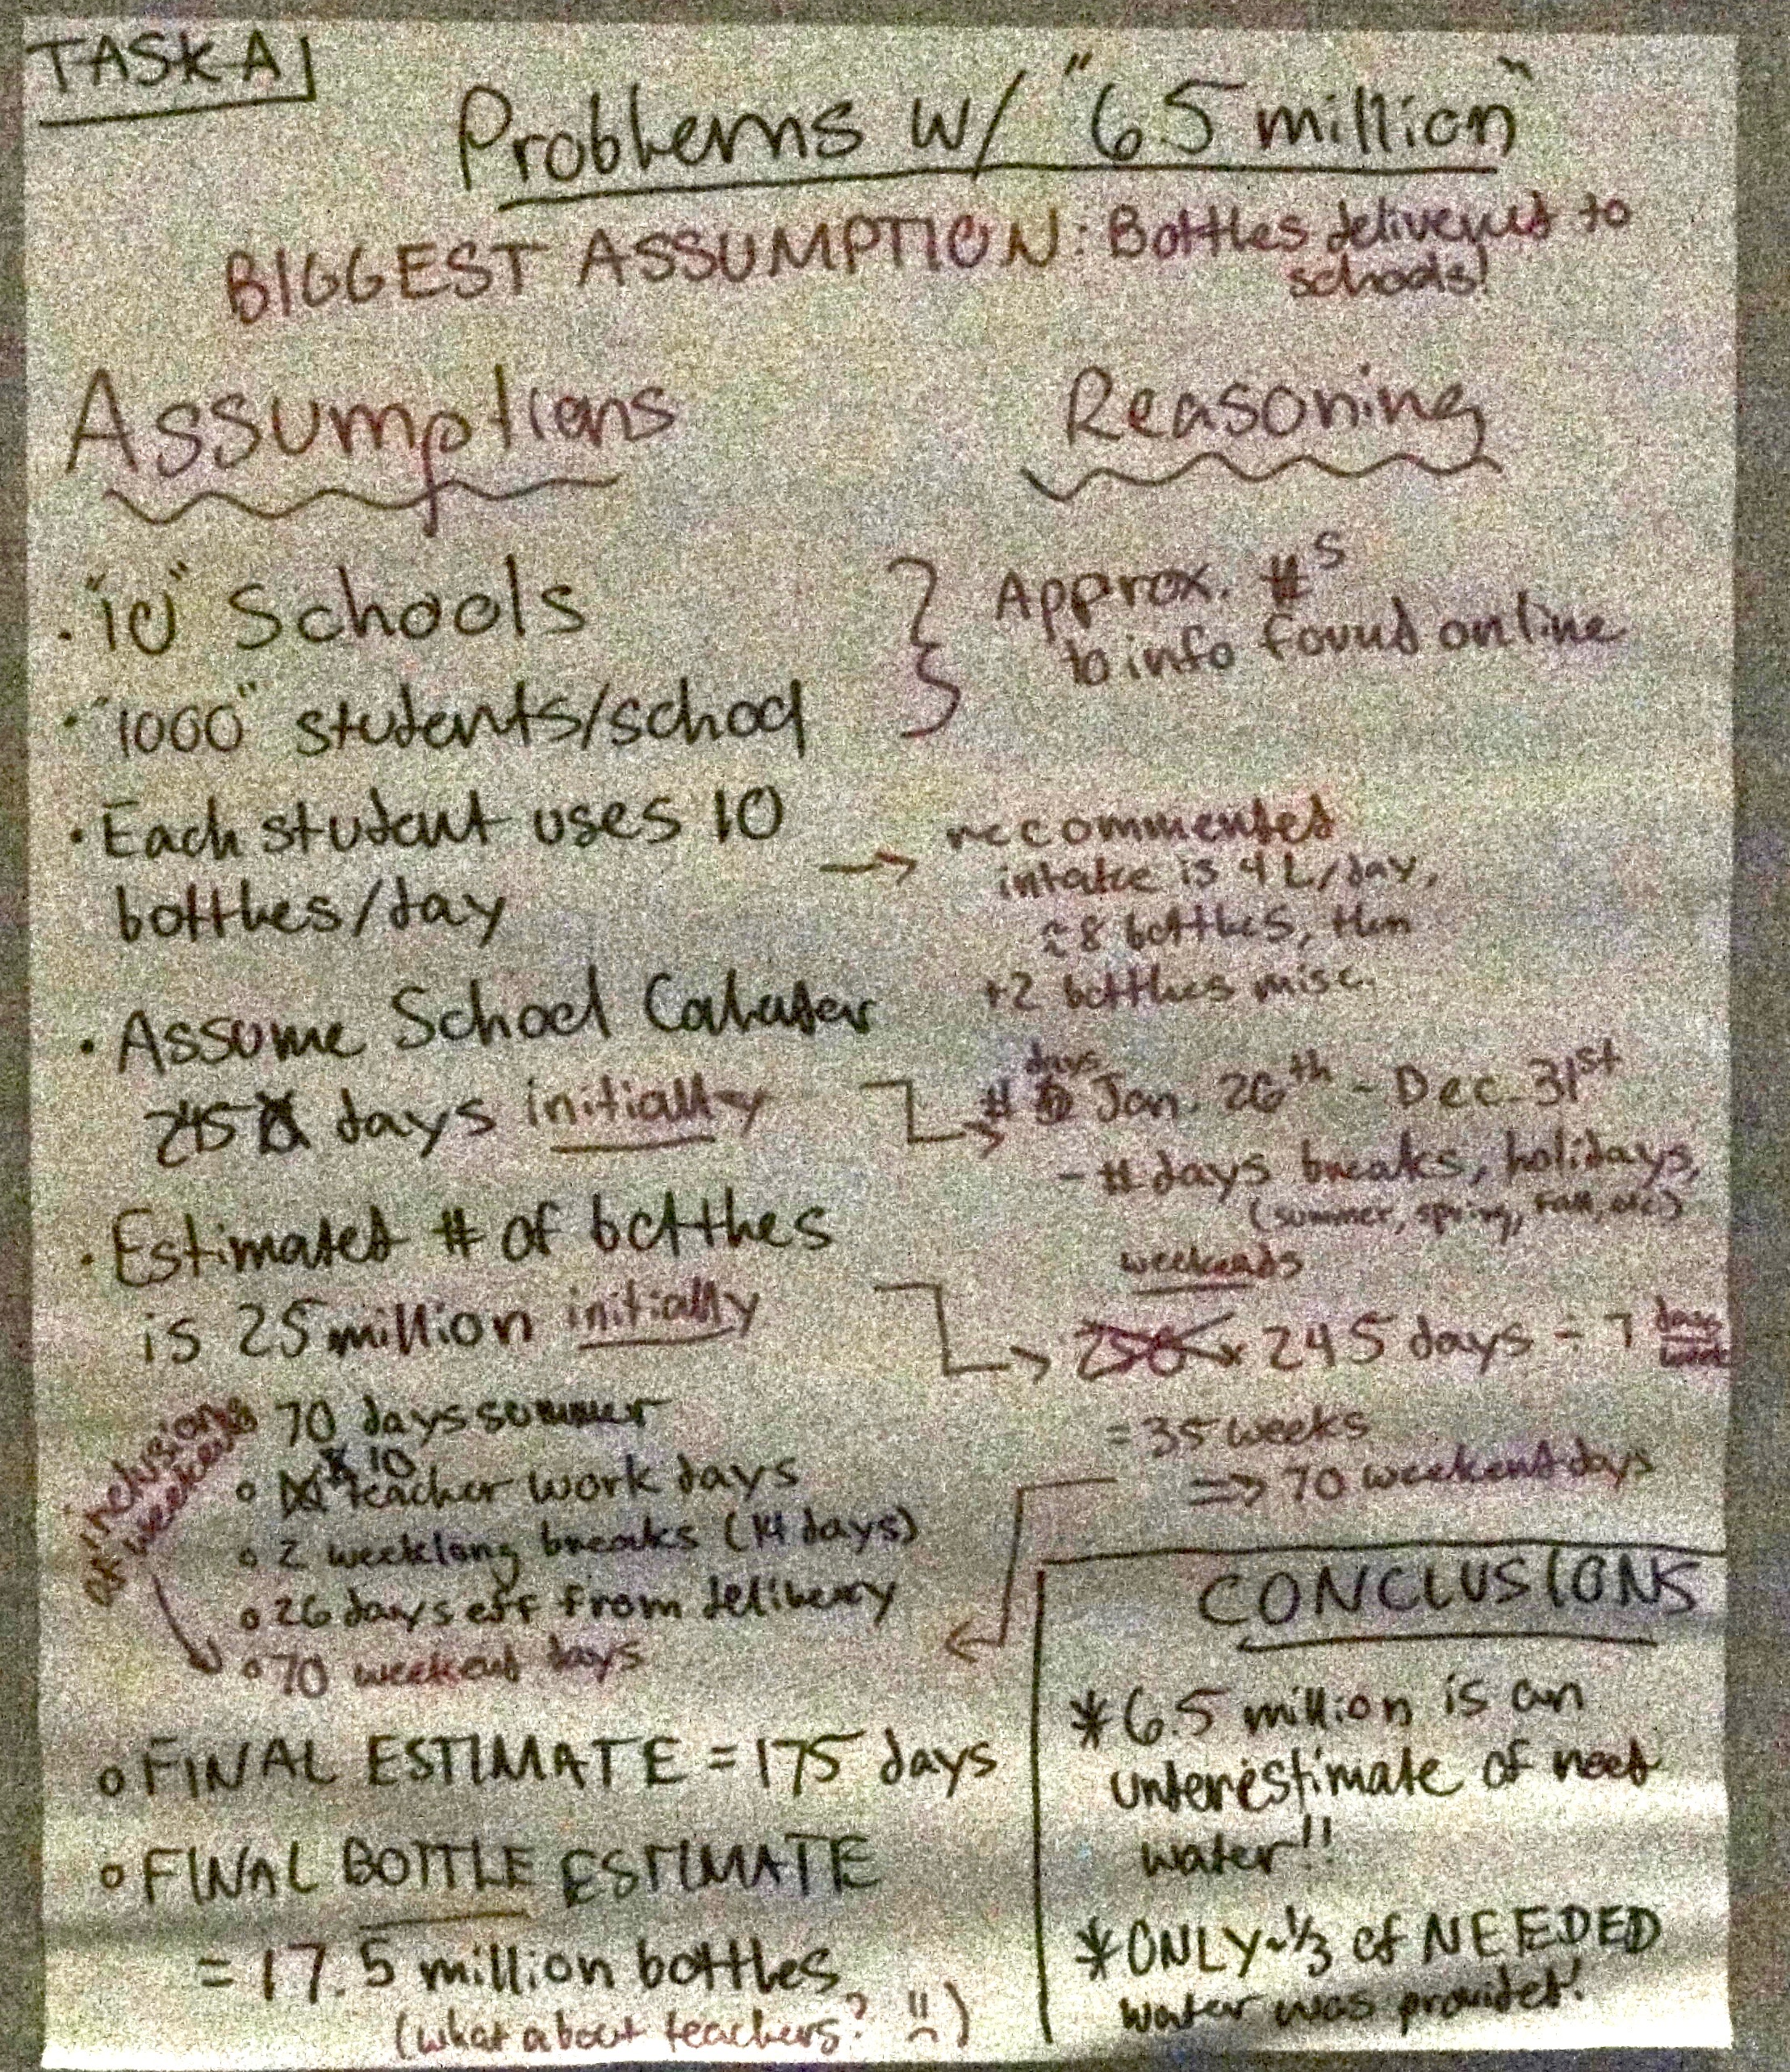 TASK A
Problems w/ "6.5 million"
BIGGEST ASSUMPTION: Bottles delivered to
schools!
Assumptions
• "10" Schools
• "1000" students/school
• Each student uses 10
bottles/day
• Assume School Calendar
245 days initially
• Estimated # of bottles
is 25 million initially
70 days summer
10
teacher work days
2 weeklong breaks (14 days)
26 days off from delivery
70 weekend days
FINAL ESTIMATE = 175 days
FINAL BOTTLE ESTIMATE
= 17.5 million bottles
(what about teachers?
Reasoning
Approx. #s
to info found online
→ recommended
intake is 4 L/day,
≈ 8 bottles, then
+2 bottles misc.
days
# Jan. 26th - Dec. 31st
- # days breaks, holidays,
(summer, spring, Fall, etc.)
weekends
245 days ÷ 7 days
= 35 weeks
⇒ 70 weekend days
CONCLUSIONS
* 6.5 million is an
underestimate of need
water!!
* ONLY ~1/3 of NEEDED
water was provided!